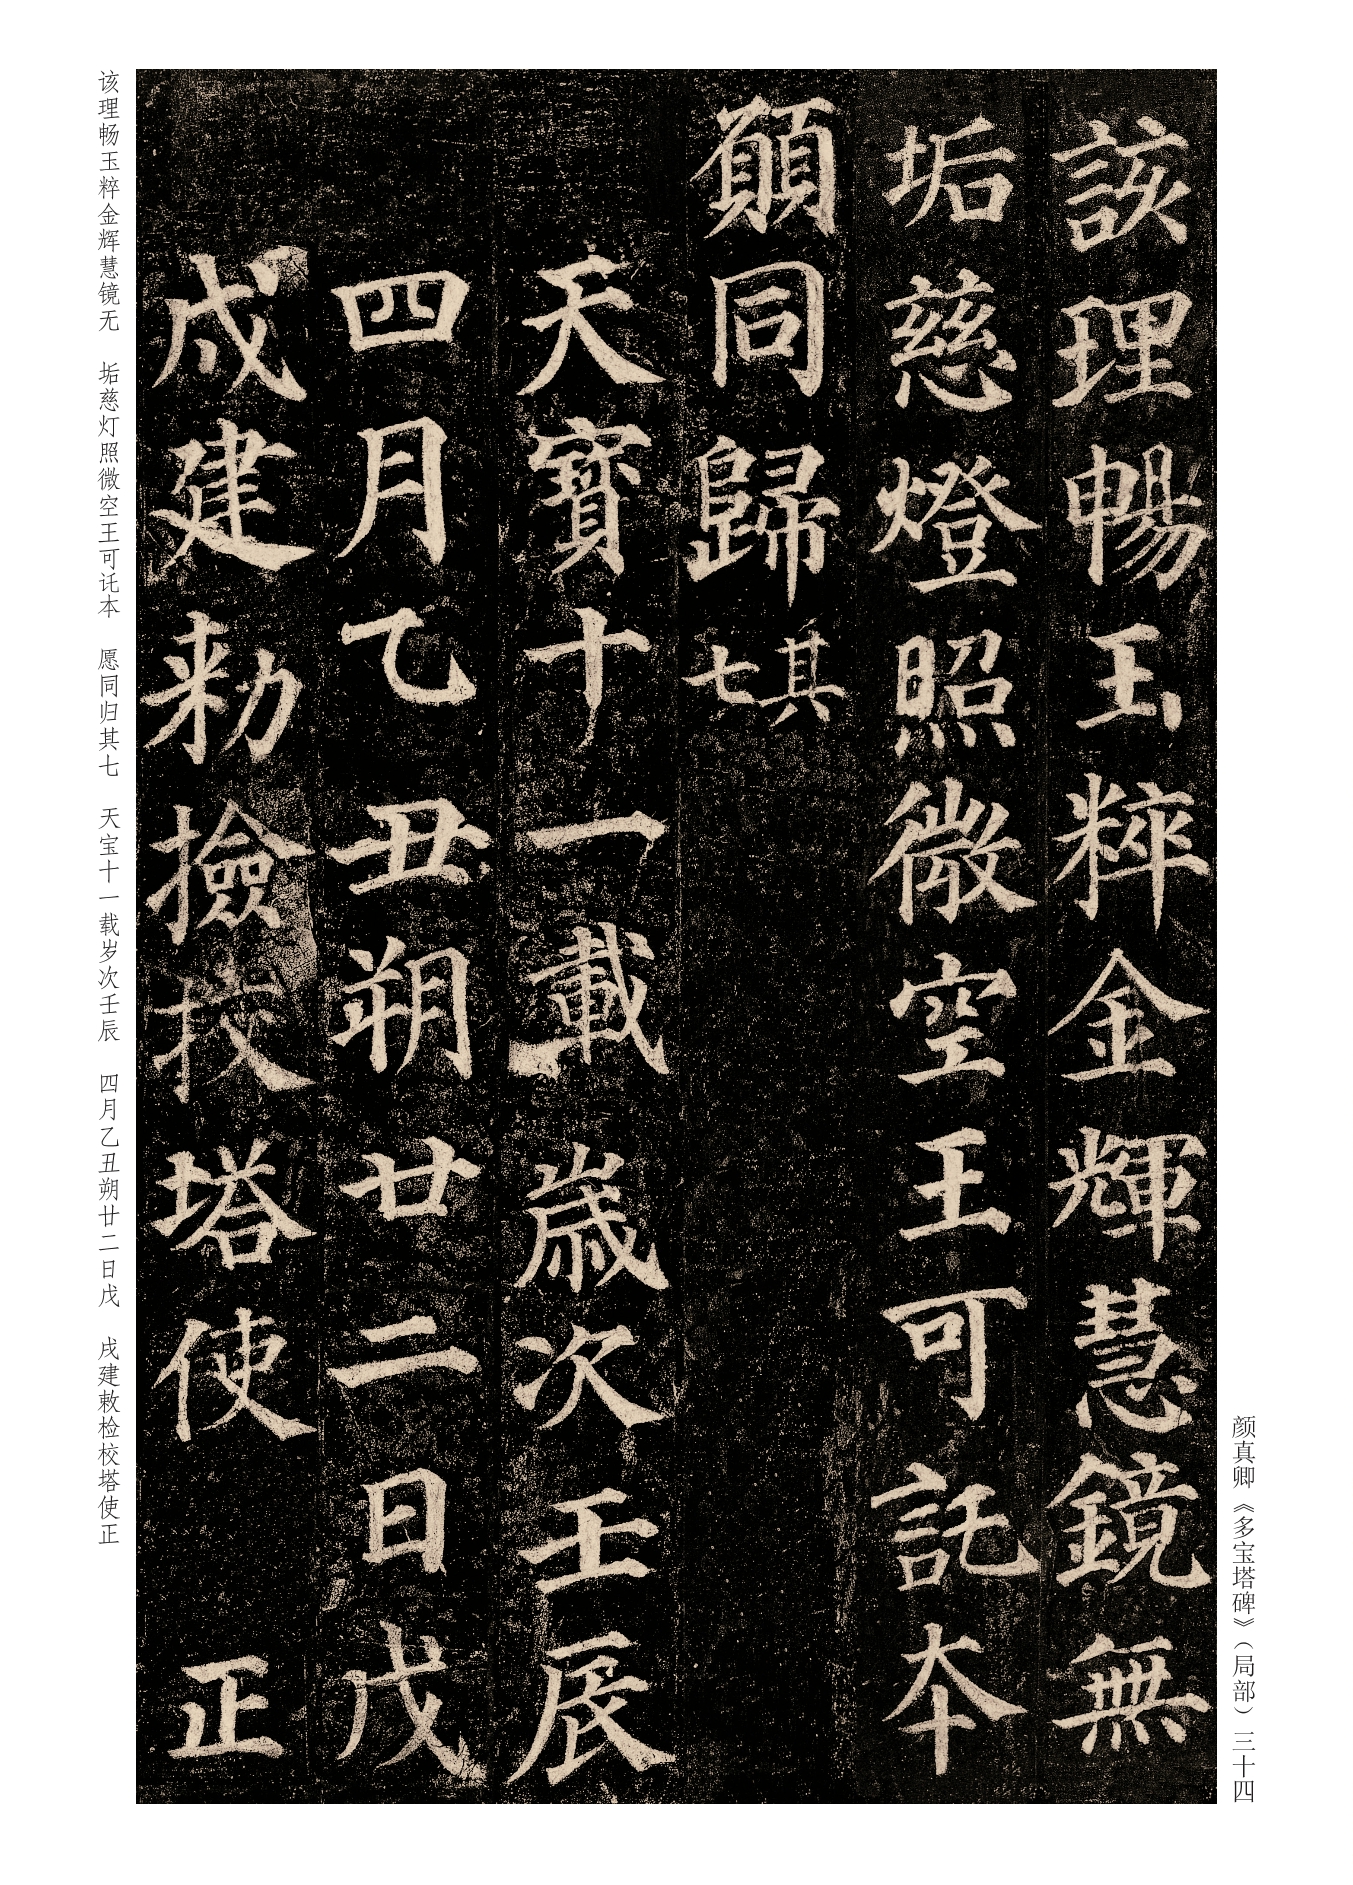 該理暢玉粹金輝慧鏡無
垢慈燈照微空王可託本
願同歸其七
天寶十一載歲次壬辰
四月乙丑朔廿二日戊
戌建勑撿挍塔使正
该理畅玉粹金辉慧镜无 垢慈灯照微空王可讬本 愿同归其七 天宝十一载岁次壬辰 四月乙丑朔廿二日戊 戌建敕检校塔使正
颜真卿《多宝塔碑》(局部)三十四